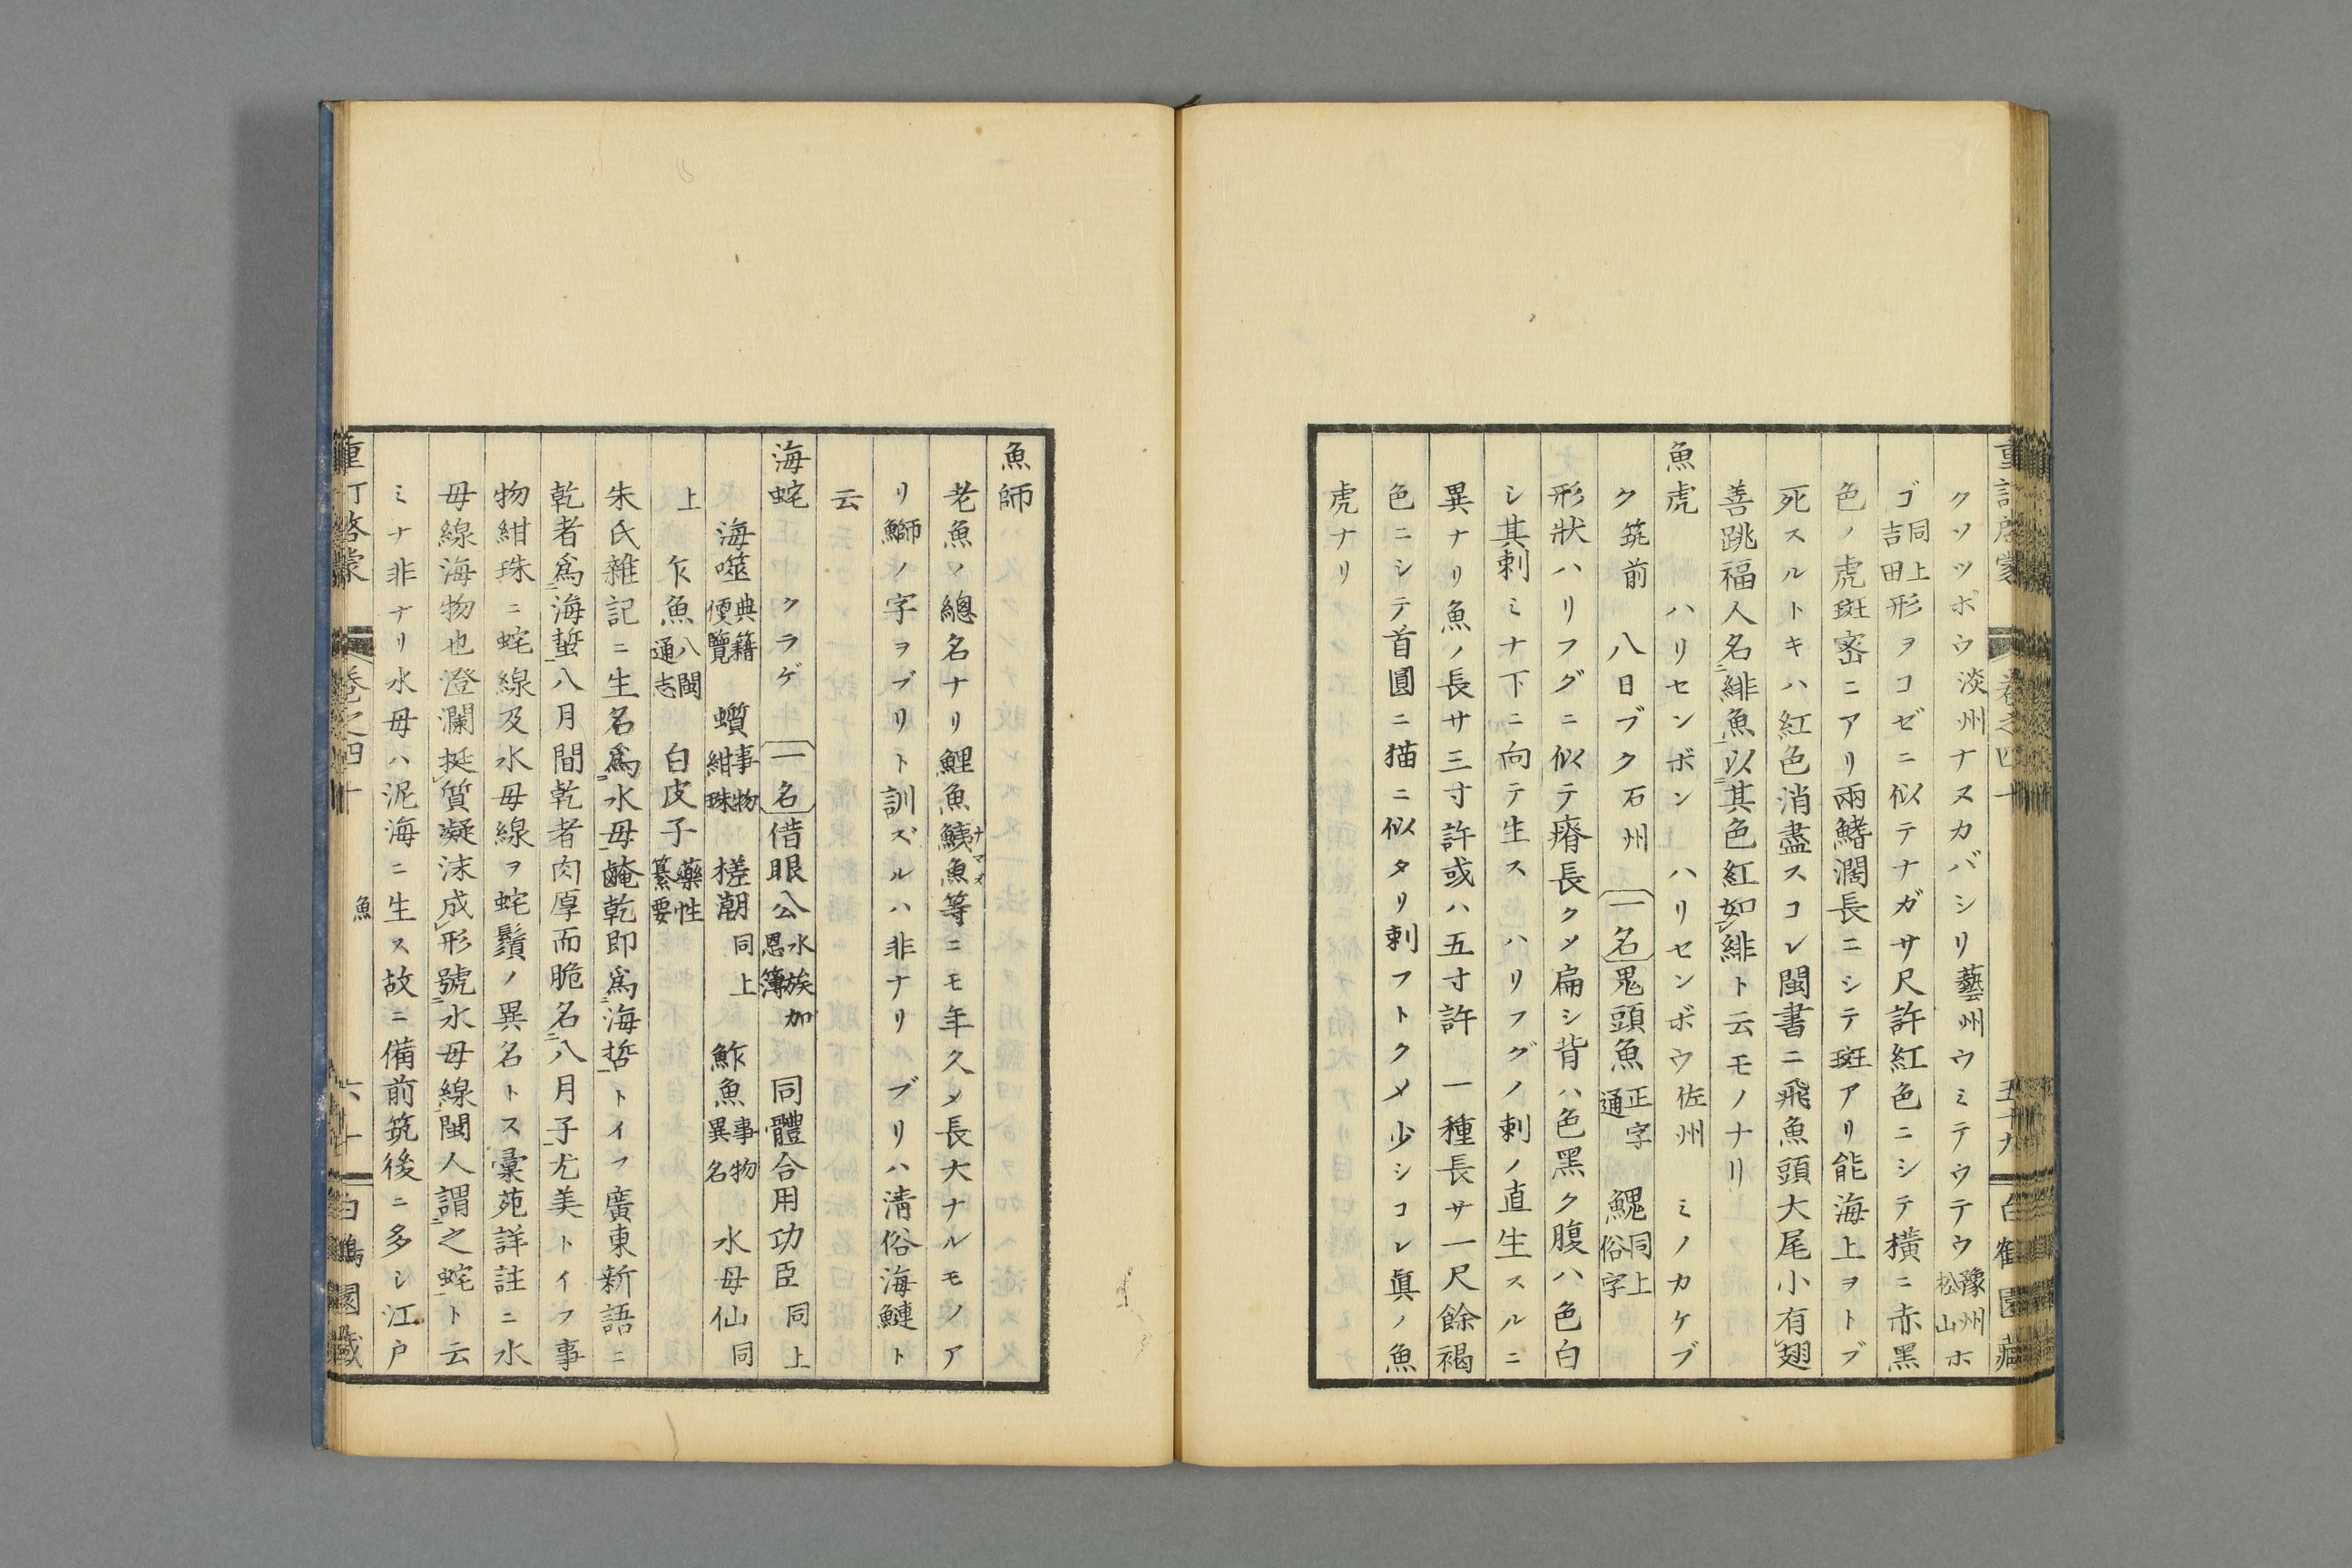 重訂啓蒙 卷之四十 五十九 白鶴園藏
クツツボウ淡州ナヌカバシリ藝州ウミテウテウ豫州松山ホ
ゴ同上吉田形ヲコゼニ似テナガサ尺許紅色ニシテ橫ニ赤黑
色ノ虎斑密ニアリ兩鰭濶長ニシテ斑アリ能海上ヲトブ
死スルトキハ紅色消盡スコレ閩書ニ飛魚頭大尾小有翅
善跳福人名緋魚以其色紅如緋ト云モノナリ
魚虎 ハリセンボン ハリセンボウ佐州 ミノカケブ
ク筑前 八日ブク石州 一名鬼頭魚正字通 䰟同上俗字
形狀ハリフグニ似テ瘠長クメ扁シ背ハ色黑ク腹ハ色白
シ其刺ミナ下ニ向テ生ス ハリフグノ刺ノ直生スルニ
異ナリ魚ノ長サ三寸許或ハ五寸許 一種長サ一尺餘褐
色ニシテ首圓ニ猫ニ似タリ刺フトクメ少シコレ眞ノ魚
虎ナリ
魚師
老魚ノ總名ナリ鯉魚鮧魚ナマズ等ニモ年久メ長大ナルモノア
リ鰤ノ字ヲブリト訓ズルハ非ナリ ブリハ淸俗海鰱ト
云
海蛇 クラゲ 一名借眼公水族加恩簿 同體合用功臣同上
海噬典籍便覽 蟦事物紺珠 槎潮同上 鮓魚事物異名 水母仙同
上 乍魚八閩通志 白皮子藥性纂要
朱氏雜記ニ生名爲水母鹹乾即爲海晢トイフ廣東新語ニ
乾者爲海蜇八月間乾者肉厚而脆名八月子尤美トイフ事
物紺珠ニ蛇線及水母線ヲ蛇鬚ノ異名トス彙苑詳註ニ水
母線海物也澄瀾挺質凝沫成形號水母線閩人謂之蛇ト云
ミナ非ナリ水母ハ泥海ニ生ス故ニ備前筑後ニ多シ江戸
重訂啓蒙 卷之四十 魚 六十 白鶴園藏